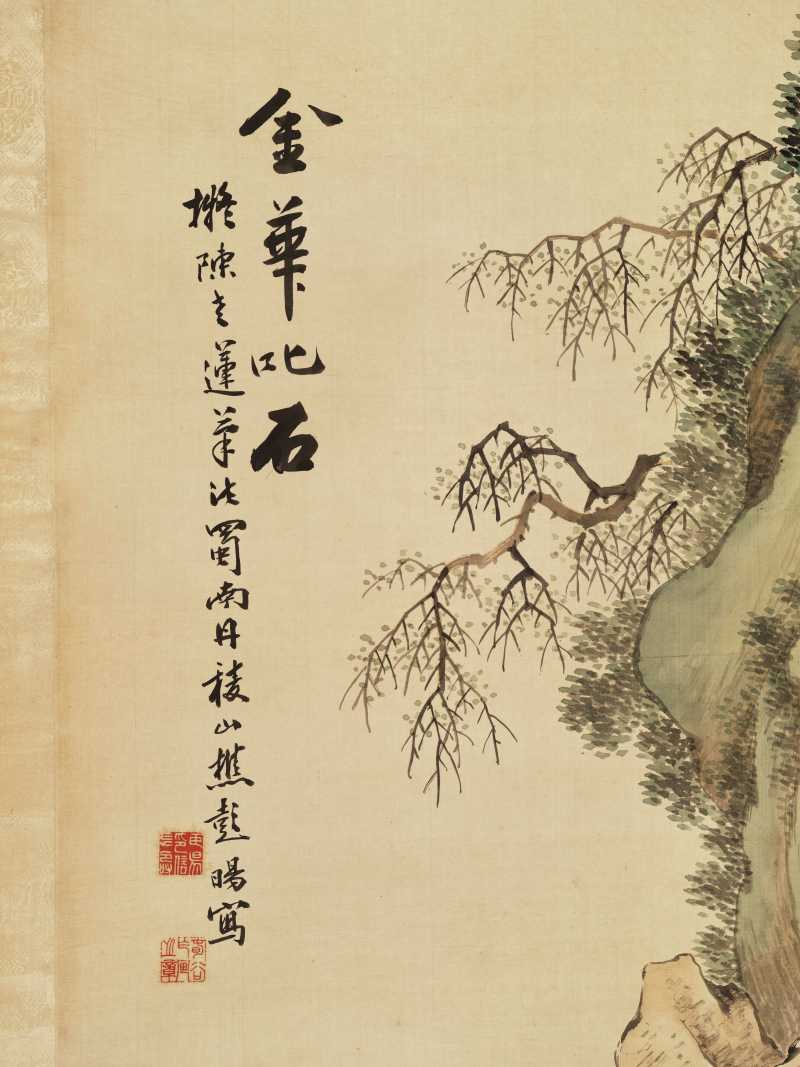 金華叱石
擬陳老蓮筆法蜀南丹稜山樵彭暘寫